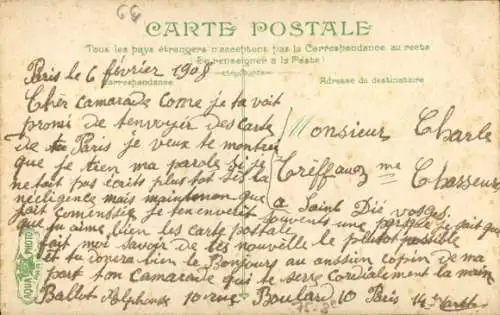 CARTE POSTALE
Tous les pays étrangers n'acceptent pas la Correspondance au recto
(Se renseigner à la Poste)
Correspondance
Adresse du destinataire
Paris le 6 février 1908
Cher camarade Come je ta voit
promi de tenvoyer des carte
de Paris je veux te montrer
que je tien ma parole si je
ne tait pas écrits plus tot sés la
négligence mais maintenan que
jait comensser je tenverrét souvents une parseque je sait que
que tu aime bien les carte postale
fait moi savoir de tes nouvelle le plutot possible
et tu donera bien le Bonjours au anssien copin de ma
part ton Camarade qui te serre cordialement la main
Ballet Alphonse 10 rue Boulard 10 Paris 14
Monsieur Charle
Tréffauez me
Chasseur
a Saint Dié vosges
AQUA PHOTO